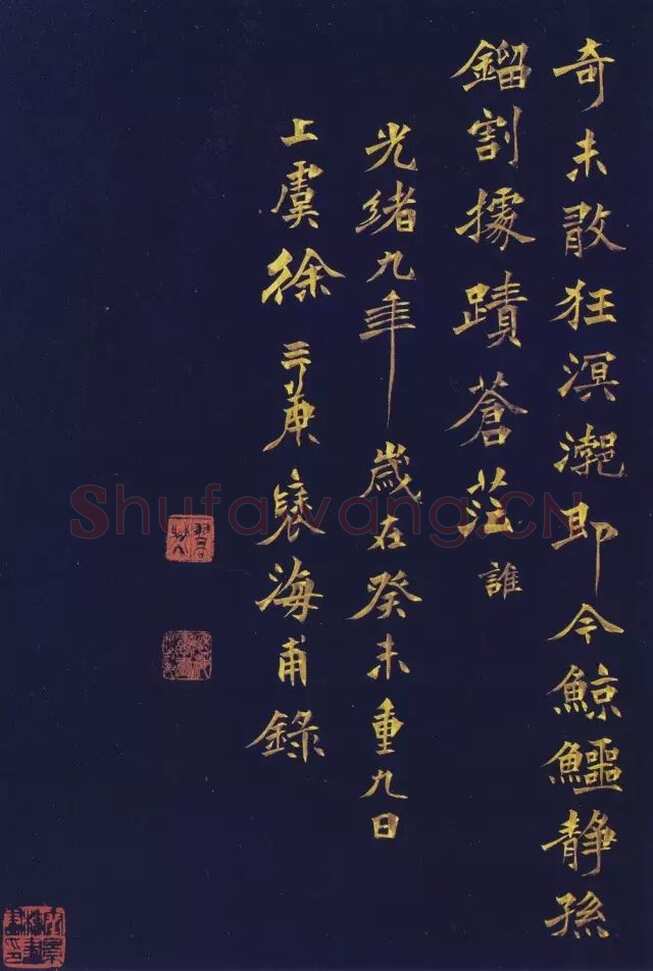 奇未敢狂溟即今鯨鱷靜孫
鎦割據蹟蒼茫誰
光緒九年歲在癸未重九日
上虞徐三庚褎海甫錄
Shufawang.CN